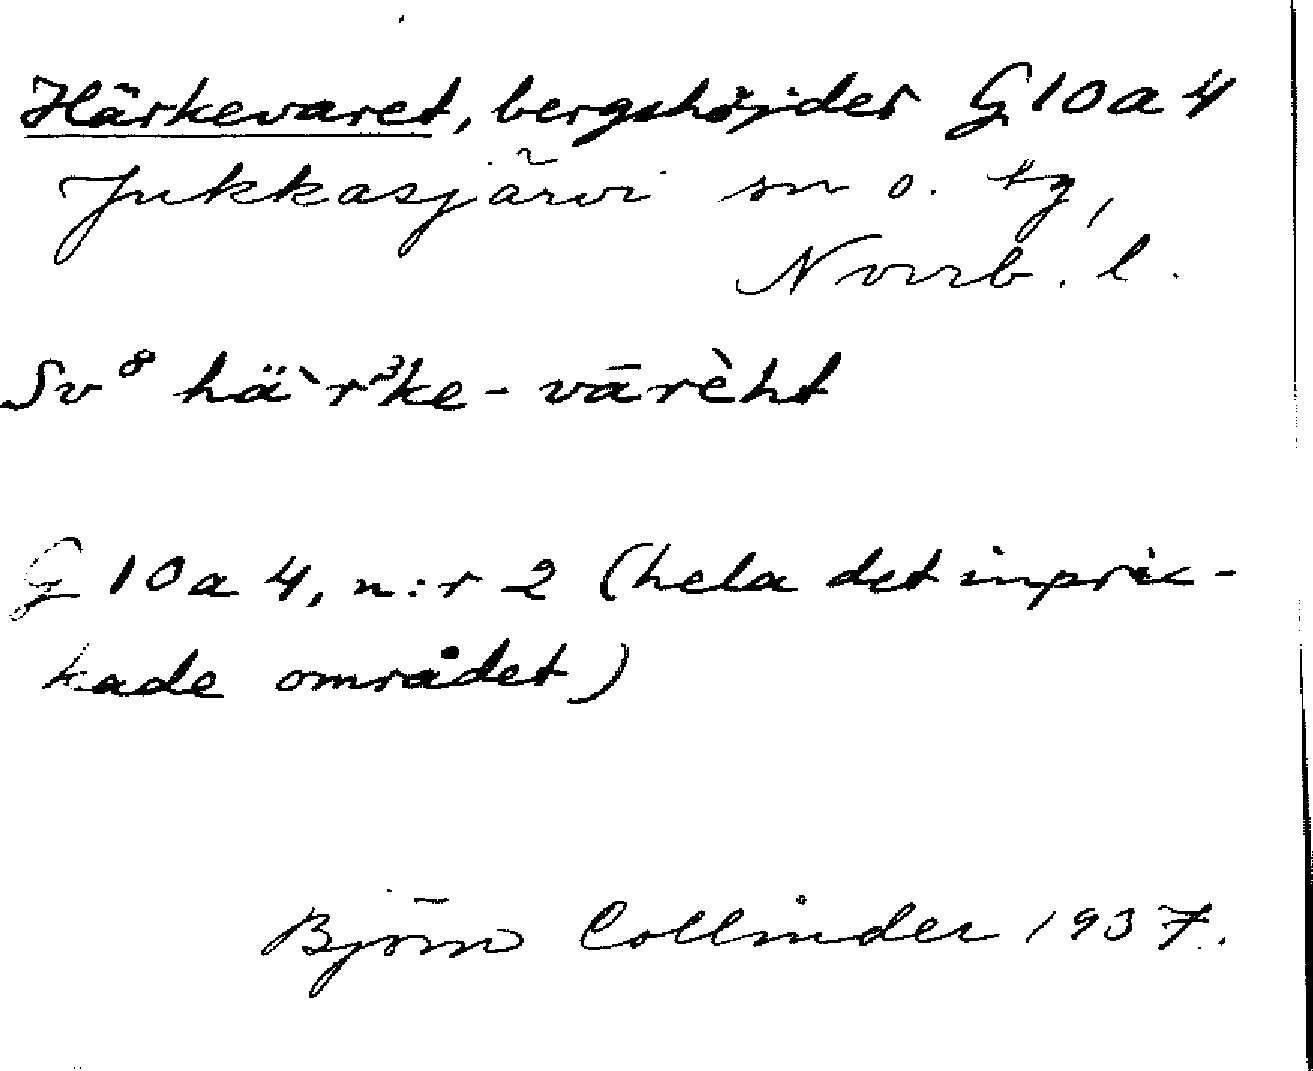 Härkevaret, bergshöjder G 10 a 4
Jukkasjärvi sn o. tg,
Norrb. l.
Sv⁸ hä`r³ke-vārèht
G 10 a 4, n:r 2 (hela det inpric-
kade området)
Björn Collinder 1937.